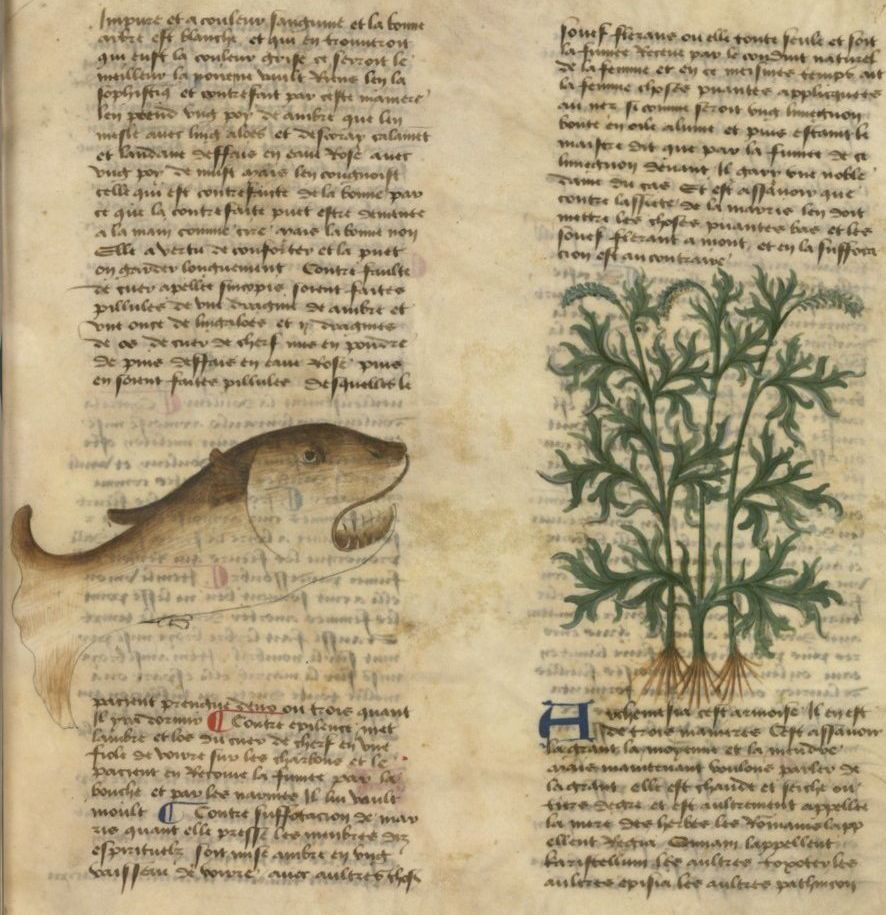 Impure et a couleur sanguine et la bonne
ambre est blanche et qui en trouveroit
qui eust la couleur grise ce seroit le
meilleur la pouent vault Riens len la
sophistiq et contrefait par ceste maniere
len prend ung por de ambre que len
mesle avec ling aloes et descorax calamet
et laudane deffais en eaue Rose avec
ung por de musc mais len congnoist
celle qui est contrefaicte de la bonne par
ce que la contrefaite puet estre demanee
a la main comme cire mais la bonne non
Elle a vertu de conforter et la puet
on garder longuement Contre faulte
de cuer apellee sincopis soient faites
pillules de une dragme de ambre et
une once de lingaloes et ij dragmes
de os de cuer de cherf mis en pouldre
de puis deffais en eaue Rose puis
en soient faites pillules desquelles le
pacient prengne deux ou trois quant
Il yra dormir Contre epilence met
lambre et los du cuer de cherf en une
fiole de voirre sur les charbons et le
pacient en Recoive la fumee par la
bouche et par les narines Il lui vault
moult Contre suffocacion de mar
ris quant elle presse les menbres diz
espirituelz soit mise ambre en ung
vaisseau de voirre avec aultres choses
souef flerans ou elle toute seule et soit
la fumee Receue par le conduit naturel
de la femme et en ce meismes temps ait
la femme choses puantes appliquees
au nez si comme seroit ung limegnon
boute en oile alume et puis estaint le
maistre dit que par la fumee de ce
limegnon devant Il gary une noble
dame du cas Et est assavoir que
contre lassiete de la marris len doit
mettre les choses puantes bas et les
souef flerant a mont et en la suffoca
cion est au contraire
Archemisia cest armoise Il en est
de trois manieres Cest assavoir
la grant la moyenne et la mendre
mais maintenant voulons parler de
la grant elle est chaude et seiche ou
tiers degre et est aultrement appellee
la mere des herbes les Romains lapp
ellent Regia lappellent
les aultres les
aultres les aultres